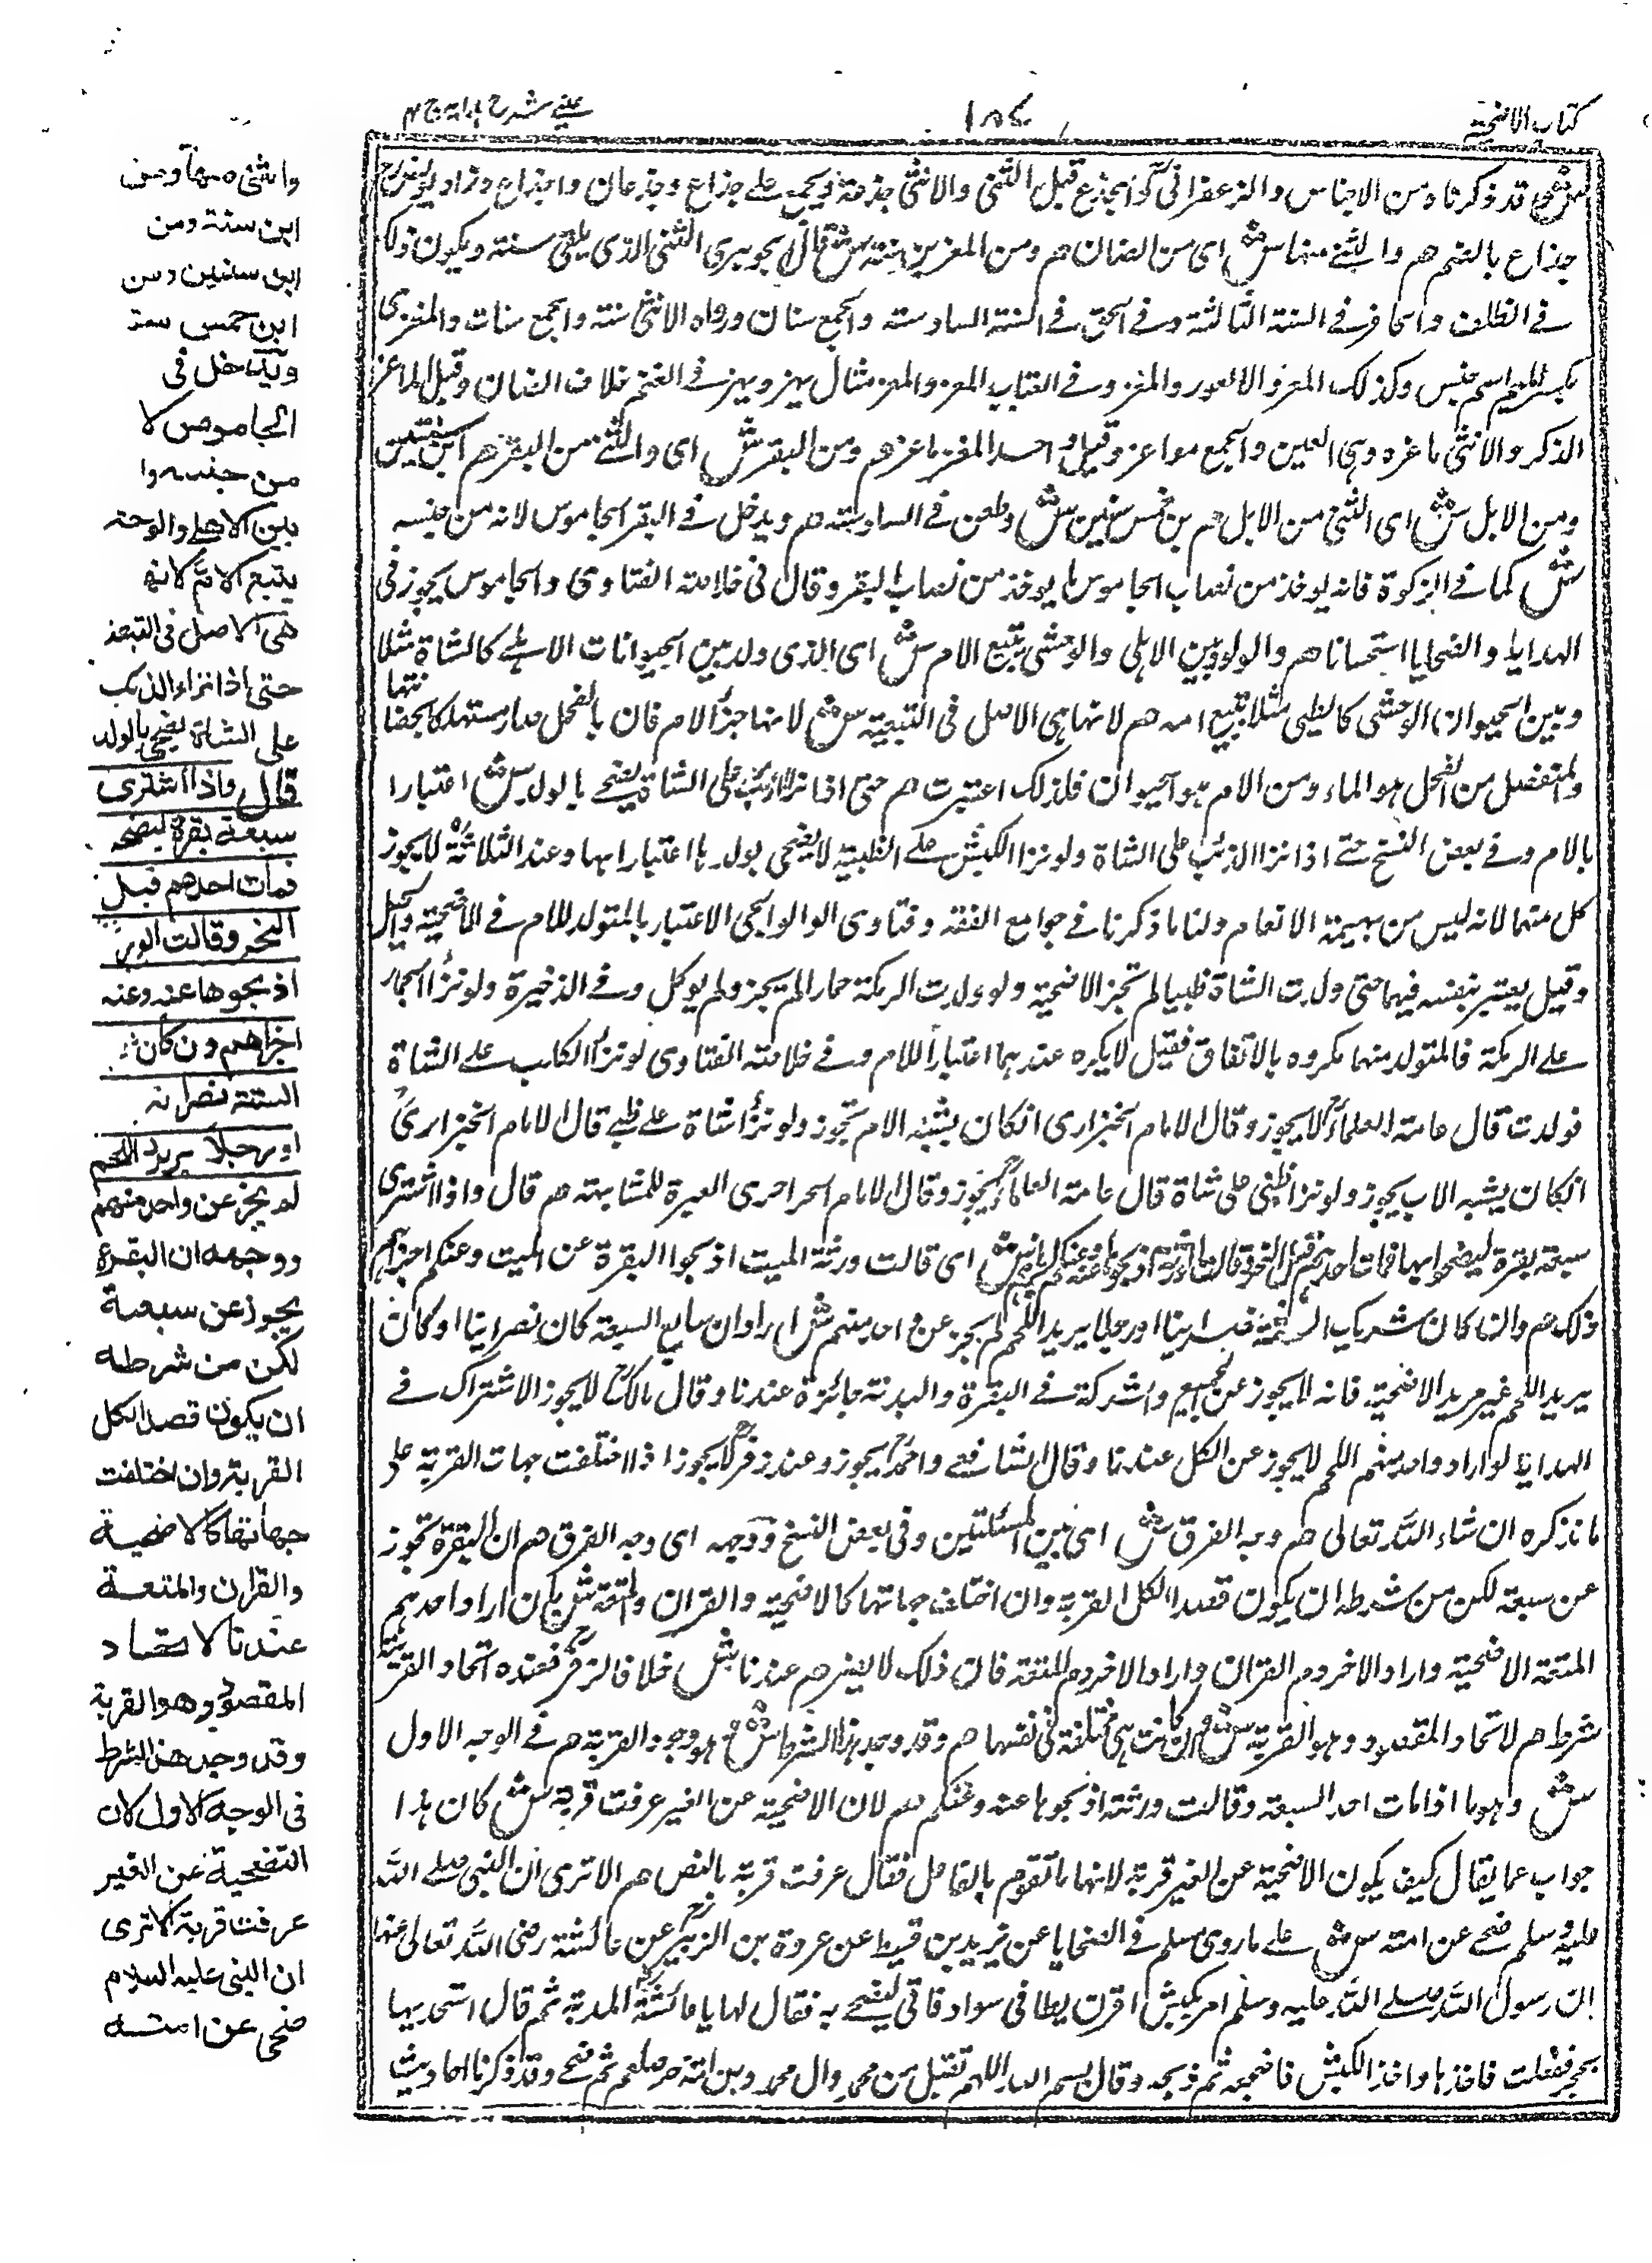 كتاب الاضحية
١٨٤
عيني شرح هداية ج ٤
قد ذكرناه من الاجناس والزعفراني والجذع قبل الثني والانثى جذعة ويجمع على جذاع وجذعان واجذاع وزاد
جذاع بالضم هم والثني منها ش اي من الضان هم ومن المعز بن سنة ش قال الجوهري الثني الذي يلقي سنته ويكون ذلك
في الظلف والحافر في السنة الثالثة وفي الخف في السنة السادسة والجمع ثنيان ورواه الانثى ثنية والجمع ثنيات والمعزى
بكسر الميم اسم جنس وكذلك المعز والامعوز والمعز وفي العباب المعز والمعز مثال نهر ونهر في الغنم خلاف الضان وقيل الماعز
الذكر والانثى ماعزة وهي العين والجمع مواعز وقيل واحد المعز ماعز هم ومن البقر ش اي والثني من البقر هم ابن سنتين
ومن الابل ش اي الثني من الابل هم بن خمس سنين ش وطعن في السادسة هم ويدخل في البقر الجاموس لانه من جنسه
ش كما في الزكوة فانه يوخذ من نصاب الجاموس ما يوخذ من نصاب البقر وقال في خلاصة الفتاوى والجاموس يجوز في
الهدايا والضحايا استحسانا هم والمولود بين الاهلي والوحشي يتبع الام ش اي الذي ولد بين الحيوانات الاهلي كالشاة مثلا
وبين الحيوان الوحشي كالظبي مثلا يتبع امه هم لانها هي الاصل في التبعية ش لانها جزء الام فان بالفحل صار مستهلكا بحضانتها
والمنفصل من الفحل هو الماء ومن الام هو الحيوان فلذلك اعتبرت هم حتى اذا نزا الذئب على الشاة يضحي بالولد ش اعتبارا
بالام وفي بعض النسخ حتى اذا نزا الذئب على الشاة ولو نزا الكبش على الظبية لا يضحى بولدها اعتبارا بها وعند الثلاثة لا يجوز
كل منهما لانه ليس من بهيمة الانعام ولنا ما ذكرنا في جوامع الفقه وفتاوى الولوالجي الاعتبار بالمتولد للام في الاضحية والحل
وقيل يعتبر بنفسه فيهما حتى ولدت الشاة ظبيا لم تجز الاضحية ولو ولدت الرمكة حمارا لم يجز ولم يوكل وفي الذخيرة ولو نزا الحمار
على الرمكة فالمتولد منهما مكروه بالاتفاق فقيل لا يكره عندهما اعتبارا للام وفي خلاصة الفتاوى لو نزا الكلب على الشاة
فولدت قال عامة العلماء لا يجوز وقال الامام الخيزاري انكان يشبه الام تجوز ولو نزا شاة على ظبي قال الامام الخيزاري
انكان يشبه الاب يجوز ولو نزا ظبي على شاة قال عامة العلماء يجوز وقال الامام الحراحرى العبرة للمشابهة هم قال واذا اشترى
سبعة بقرة ليضحوا بها فمات احدهم قبل النحر وقالت الورثة اذبحوها عنه وعنكم ش اي قالت ورثة الميت اذبحوا البقرة عن الميت وعنكم اجزاهم
ذلك هم وان كان شريك الستة نصرانيا او رجلا يريد اللحم لم يجز عن واحد منهم ش اراد ان سابع السبعة كان نصرانيا او كان
يريد اللحم غير مريد الاضحية فانه لا يجوز عن الجميع والشركة في البقرة والبدنة جائزة عندنا وقال مالك لا يجوز الاشتراك في
الهدايا لو اراد واحد منهم اللحم لا يجوز عن الكل عندنا وقال الشافعي واحمد يجوز وعند زفر لا يجوز اذا اختلفت جهات القربة على
ما نذكره ان شاء الله تعالى هم وجه الفرق ش اي بين المسئلتين وفي بعض النسخ ووجهه اي وجه الفرق هم ان البقرة تجوز
عن سبعة لكن من شرطه ان يكون قصد الكل القربة وان اختلف جهاتها كالاضحية والقران والمتعة ش بان اراد احدهم
المتعة الاضحية واراد الاخر دم القران واراد الاخر دم المتعة فان ذلك لا يضر هم عندنا ش خلافا لزفر فعنده اتحاد القربة
شرط هم لاتحاد المقصود وهو القربة ش وان كانت هي مختلفة في نفسها هم وقد وجد هذا الشرط ش هو وجود القربة هم في الوجه الاول
ش وهو ما اذا مات احد السبعة وقالت ورثته اذبحوها عنه وعنكم هم لان الاضحية عن الغير عرفت قربة ش كان هذا
جواب عما يقال كيف يكون الاضحية عن الغير قربة لانها ما تقوم بالفاعل فقال عرفت قربة بالنص هم الا ترى ان النبي صلى الله
عليه وسلم ضحى عن امته ش على ما روى مسلم في الضحايا عن يزيد بن قسيط عن عروة بن الزبير عن عائشة رضي الله تعالى عنها
ان رسول الله صلى الله عليه وسلم امر بكبش اقرن يطا في سواد فاتي ليضحي به فقال لها يا عائشة المدية ثم قال اشحذيها
بحجر ففعلت فاخذها واخذ الكبش فاضجعه ثم ذبحه وقال بسم الله اللهم تقبل من محمد وال محمد ومن امة محمد صلعم ثم ضحى وقد ذكرنا احاديث
والثنى منها ومن
ابن سنة ومن
ابن سنتين ومن
ابن خمس سنة
ويدخل فى
الجاموس لا
من جنسه وا
بين الاهلي والوحشـ
يتبع الام لانها
هي الاصل فى التبعية
حتى اذا نزاء الذئب
على الشاة يضحى بالولد
قال واذا اشترى
سبعة بقرة ليضحـ
فمات احدهم قبل
النحر وقالت الور
اذبحوها عنه وعنـ
اجزاهم ون كان
الستة نصرانـ
او رجلا يريد اللحم
لم يجز عن واحد منهم
ووجهه ان البقرة
يجوز عن سبعة
لكن من شرطه
ان يكون قصد الكل
القربة وان اختلفت
جهاتها كالاضحية
والقران والمتعة
عندنا لاتحاد
المقصود وهو القربة
وقد وجد هذا الشرط
فى الوجه الاول لان
التضحية عن الغير
عرفت قربة الا ترى
ان النبي عليه السلام
ضحى عن امته